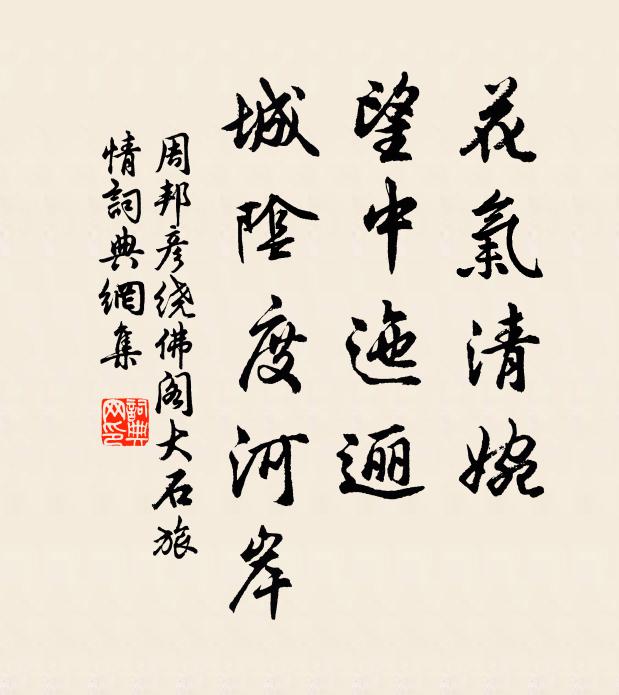 花氣清婉
望中迤逦
城陰度河岸
周邦彦绕佛阁大石旅
情詞典網集
詞典
网印